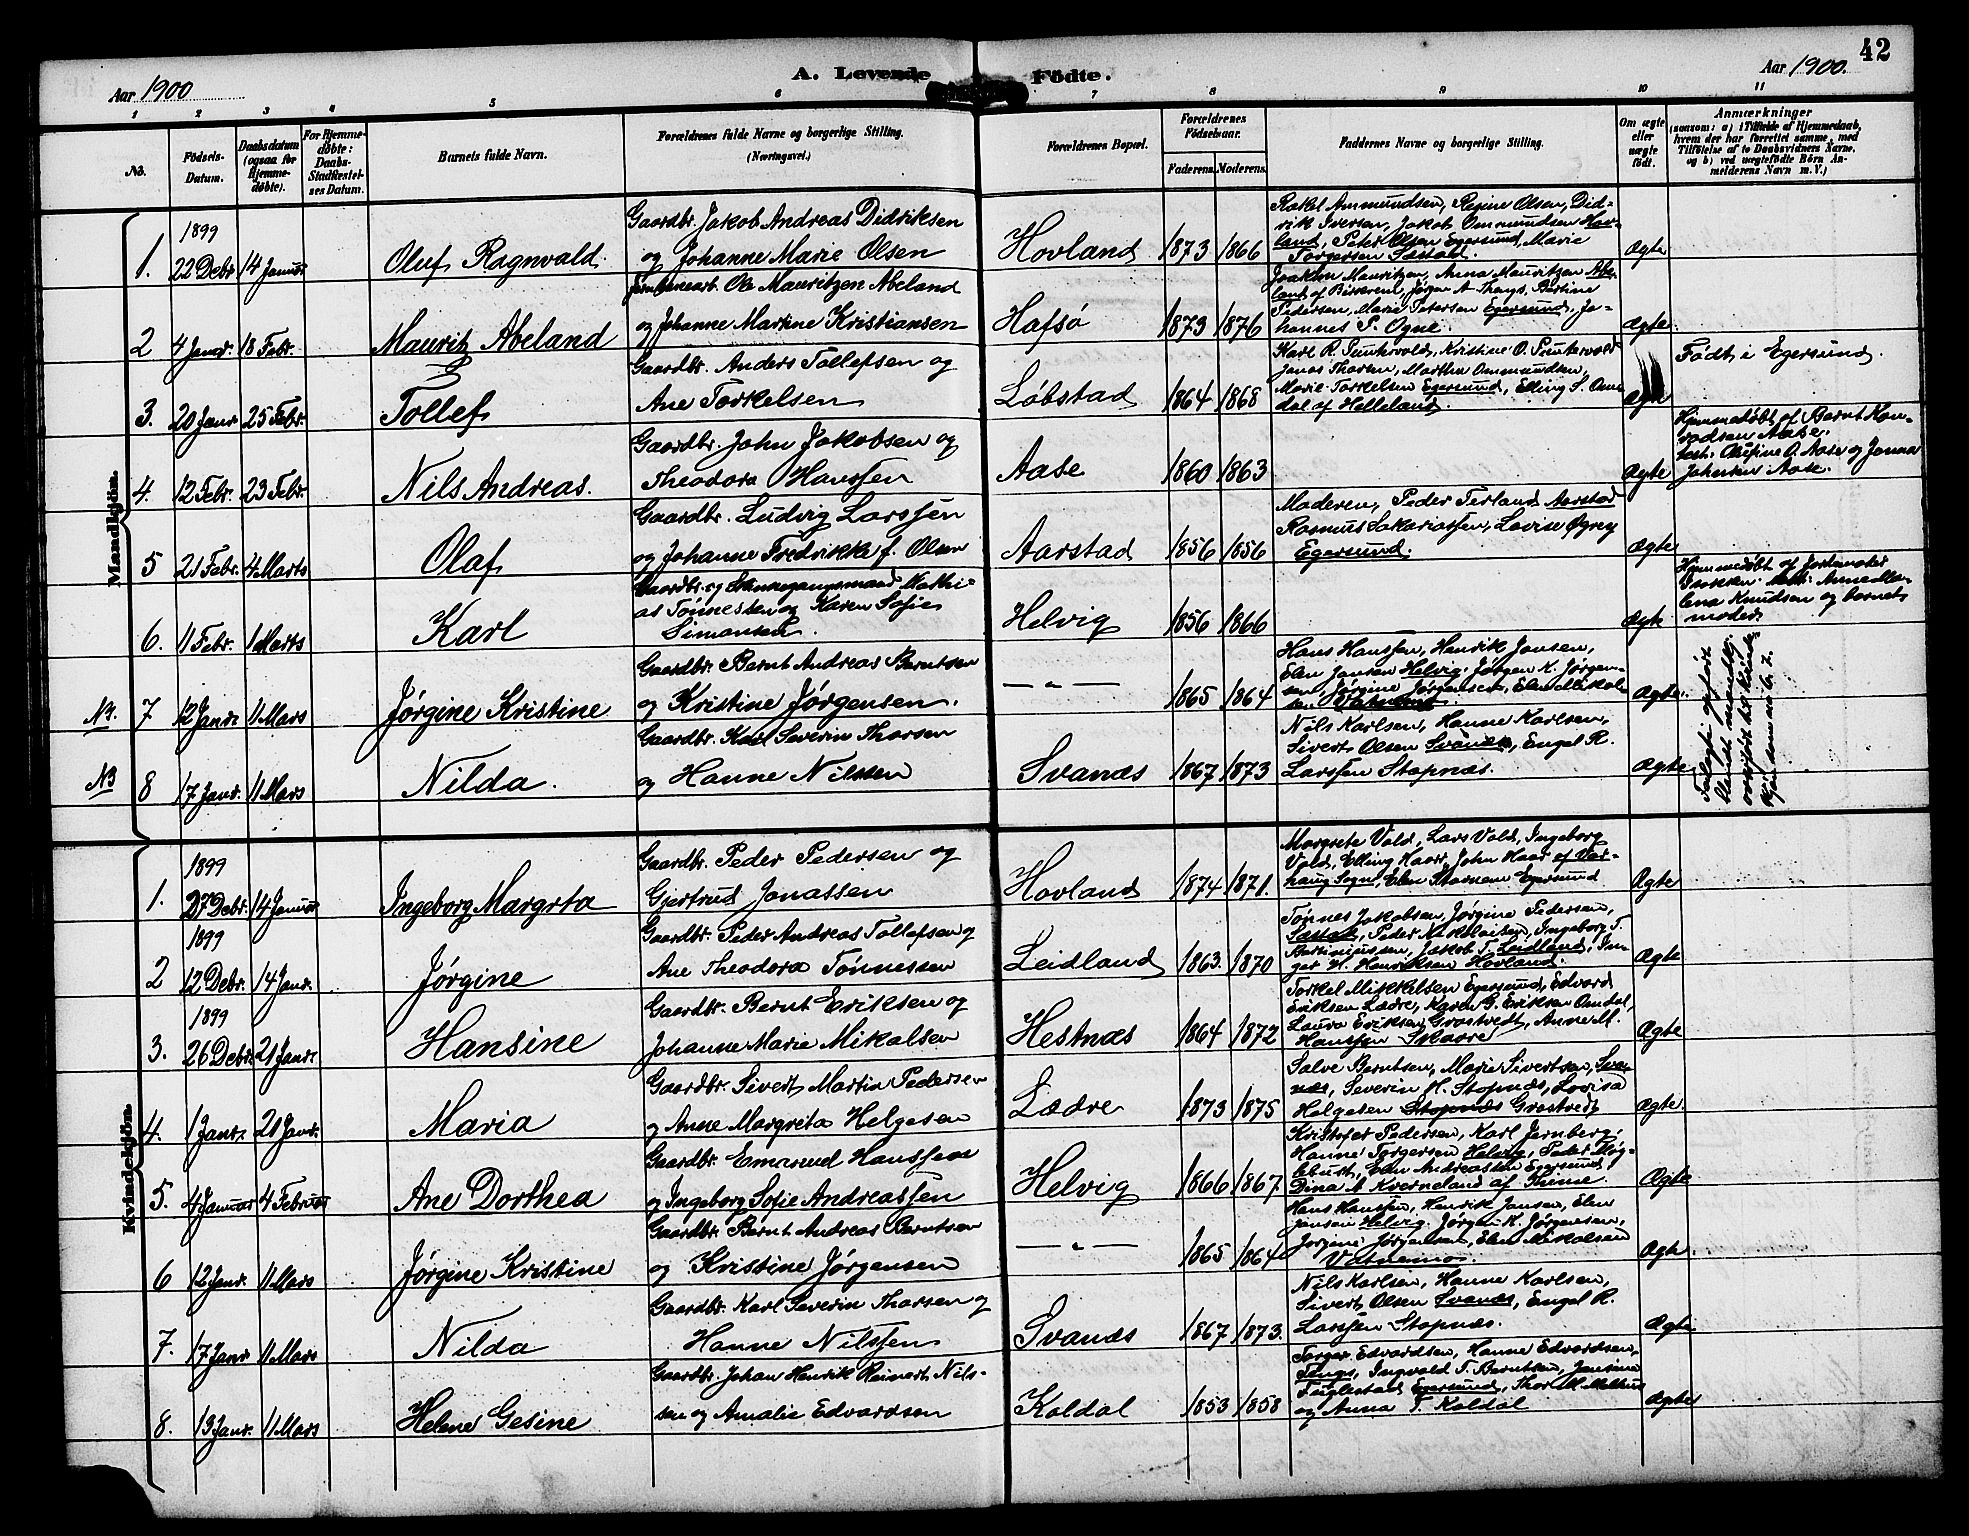 42
A. Levende Födte.
Aar 1900
Aar 1900.
1 2 3 4 5 6 7 8 9 10 11
No.
Födsels-Datum.
Daabsdatum (ogsaa for Hjemmedöbte).
For Hjemmedöbte: Daabs-Stadfæstelses Datum.
Barnets fulde Navn.
Forældrenes fulde Navne og borgerlige Stilling. (Næringsvei.)
Forældrenes Bopæl.
Forældrenes Födselsaar.
Faderens. Moderens.
Faddernes Navne og borgerlige Stilling.
Om ægte eller uægte födt.
Anmærkninger
(saasom: a) i Tilfælde af Hjemmedaab,
hvem der har forrettet samme, med
Tilföielse af to Daabsvidners Navne,
og b) ved uægtefödte Börn Anmelderens Navn m. V.)
Mandkjön.
1. 1899 22 Debr 14 Januar Oluf Ragnvald.
Gaardbr. Jakob Andreas Didriksen
og Johanne Marie Olsen
Hovland 1873 1866
Rakel Ammundsen, Regine Olsen, Did-
rik Iversen, Jakob Ommundsen Hav-
land, Peter Olsen Egersund, Marie
Torgersen Sæstad.
Ægte
2 4 Janr. 18 Febr. Mauritz Abeland
Ole Mauritzen Abeland
og Johanne Martine Kristiansen
Hafsö 1873 1876
Joakim Mauritzen, Anna Mauritzen Abe-
land af Bjerkreim, Jörgen A. Thengs, Bertine
Pedersen, Marie Petersen Egersund, Jo-
hannes P. Ogne.
Ægte.
Födt i Egersund.
3. 20 Janr 25 Febr. Tollef
Gaardbr. Anders Tollefsen og
Ane Torkelsen
Löbstad 1864 1868
Karl R. Puntervold, Kristine O. Puntervold
Jonas Thorsen, Marthe Ommundsen,
Marie Torkelsen Egersund, Elling S. Om-
dal af Helleland.
Ægte
4. 12 Febr. 23 Febr. Nils Andreas.
Gaardbr. John Jakobsen og
Theodora Hanssen
Aase 1860 1863
Ægte
Hjemmedöbt af Bernt Kon-
radsen Aase.
O. Aase og Jonna
Johnsen Aase.
5 21 Febr. 4 Marts Olaf
Gaardbr. Ludvig Larssen
og Johanne Fredrikke f. Olsen
Aarstad 1856 1856
Moderen, Peder Terland Aarstad
Rasmus Sakariassen, Lovise Ögrey
Egersund.
Ægte
6. 11 Febr. 1 Marts Karl
Gaardbr. og Stævnegangsmand Mathi-
as Tönnessen og Karen Sofie
Simonsen.
Helvig 1856 1866
Ægte
Hjemmedöbt af Jordemoder
Isaksen. Anne Mag-
lena Knudsen og barnets
moder.
NB. 7 12 Janr 11 Mars Jörgine Kristine
Gaardbr. Bernt Andreas Berntsen
og Kristine Jörgensen.
— " — 1865 1864
Hans Hanssen, Henrik Jansen,
Elen Jansen Helvig, Jörgen K. Jörgen-
sen, Jörgine Jörgensen, Elen Mikal-
sen Vatnemo
Ægte.
NB 8 17 Janr. 11 Mars Nilda.
Gaardbr. Karl Severin Thorsen
og Hanne Nilssen
Svanæs 1867 1873
Nils Karlsen, Hanne Karlsen,
Sivert Olsen Svanæs, Engel R.
Larssen Stapnæs.
Ægte
Feilagtig opfört
blandt mandkj.
overfört til kvinde-
kjön dem no 6. 7.
Kvindekjön.
1. 1899 27 Debr. 14 Januar Ingeborg Margrta
Gaardbr. Peder Pedersen og
Gjertrud Jonassen
Hovland 1874 1871.
Margrete Vold, Lars Vold, Ingeborg
Vold, Elling Haar, John Haar af Var-
haug Sogn, Elen Egersund
Ægte
2 1899 12 Debr. 14 Janr. Jörgine
Gaardbr. Peder Andreas Tollefsen og
Ane Theodora Tönnessen
Leidland 1863. 1870
Tönnes Jakobsen, Jörgine Pedersen,
Sæstad, Peder Nikolaisen, Ingeborg T.
Bertiniussen, Jakob T. Leidland, In-
ger H. Henriksen Hovland.
Ægte
3. 1899 26 Debr. 21 Janr. Hansine
Gaardbr. Bernt Eriksen og
Johanne Marie Mikalsen
Hestnæs 1864 1872
Torkel Mikkelsen Egersund, Edvard
Eriksen Lædre, Karen G. Eriksen Omdal,
Laura Eriksen Grostvedt, Anne M.
Hanssen Skaare
Ægte
4. 1 Janr. 21 Janr. Maria
Gaardbr. Sivert Martin Pedersen
og Anne Margrita Helgesen
Lædre 1873 1875
Salve Berntsen, Marie Sivertsen, Sva-
næs, Severin H. Stapnæs, Lovisa
Helgesen Stapnæs Grostvedt
Ægte.
5. 4 Januar 4 Februar Ane Dorthea
Gaardbr. Emanuel Hanssen
og Ingeborg Sofie Andreassen
Helvig 1866 1867
Kristofer Pedersen, Karl Jernberg,
Hanne Torgersen Helvig, Peter Mög-
lebust, Elen Andreassen Egersund,
Dina A Kverneland af Thime.
Ægte
6 12 Janr. 11 Mars Jörgine Kristine
Gaardbr. Bernt Andreas Berntsen
og Kristine Jörgensen
— " — 1865 1864
Hans Hanssen, Henrik Jansen, Elen
Jansen Helvig, Jörgen K. Jörgensen,
Jörgine Jörgensen, Elen Mikalsen
Vatnemo.
Ægte.
7. 17 Janr 11 Mars Nilda
Gaardbr. Karl Severin Thorsen og
Hanne Nilssen
Svanæs 1867 1873.
Nils Karlsen, Hanne Karlsen,
Sivert Olsen Svanæs, Engel R.
Larssen Stapnæs.
Ægte
8. 13 Janr. 11 Mars Helene Gesine
Gaardbr. Johan Henrik Reinert Nils-
sen og Amalie Edvardsen
Koldal 1853 1858
Torger Edvardsen, Hanne Edvardsen,
Tengs, Ingvald T. Berntsen, Jensine
Fuglestad Egersund, Thor M. Melhus
og Anna T. Koldal
Ægte